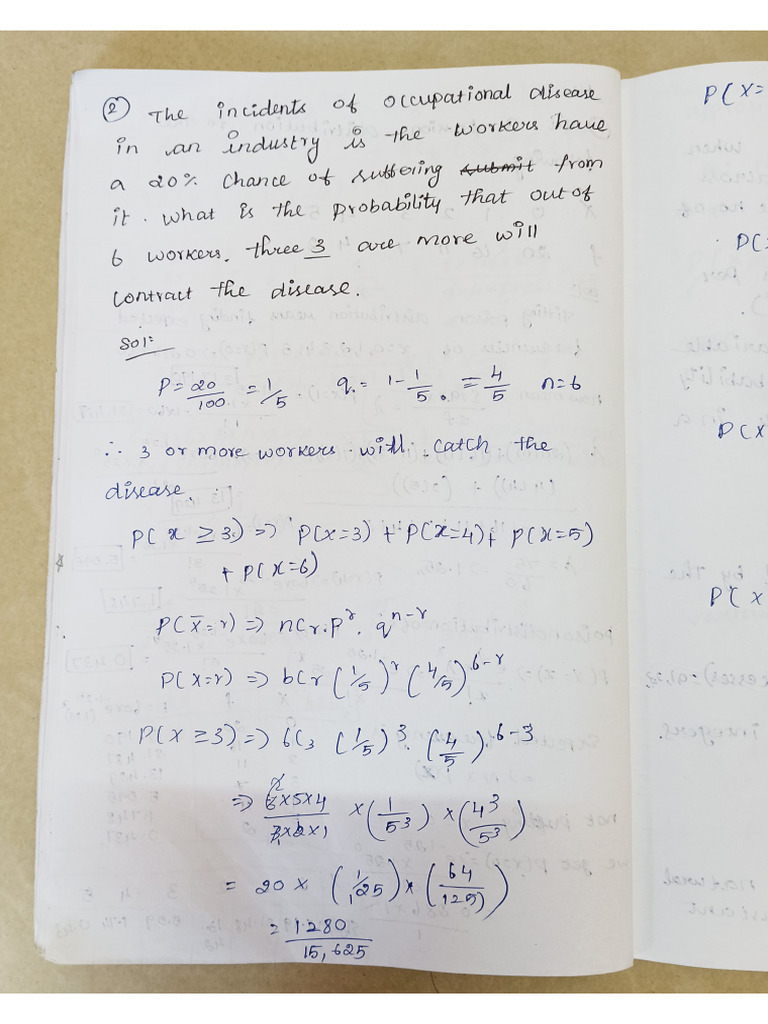 ② The incidents of occupational disease
in an industry is the workers have
a 20% chance of suffering submit from
it. What is the probability that out of
6 workers. three 3 are more will
contract the disease.
Sol:
P = 20/100 = 1/5 . q = 1 - 1/5 . = 4/5 n=6
∴ 3 or more workers will catch the
disease.
P( x ≥ 3) => P(x=3) + P(x=4) + P(x=5)
+ P(x=6)
P(x̄=r) => nCr . P^r . q^n-r
P(x=r) => 6Cr (1/5)^r (4/5)^6-r
P(x ≥ 3) => 6C3 (1/5)^3 . (4/5)^6-3
=> 6x5x4/3x2x1 x (1/5^3) x (4^3/5^3)
= 20 x (1/125) x (64/125)
= 1280/15,625
P(X=
when
P(X
P(X
P(X